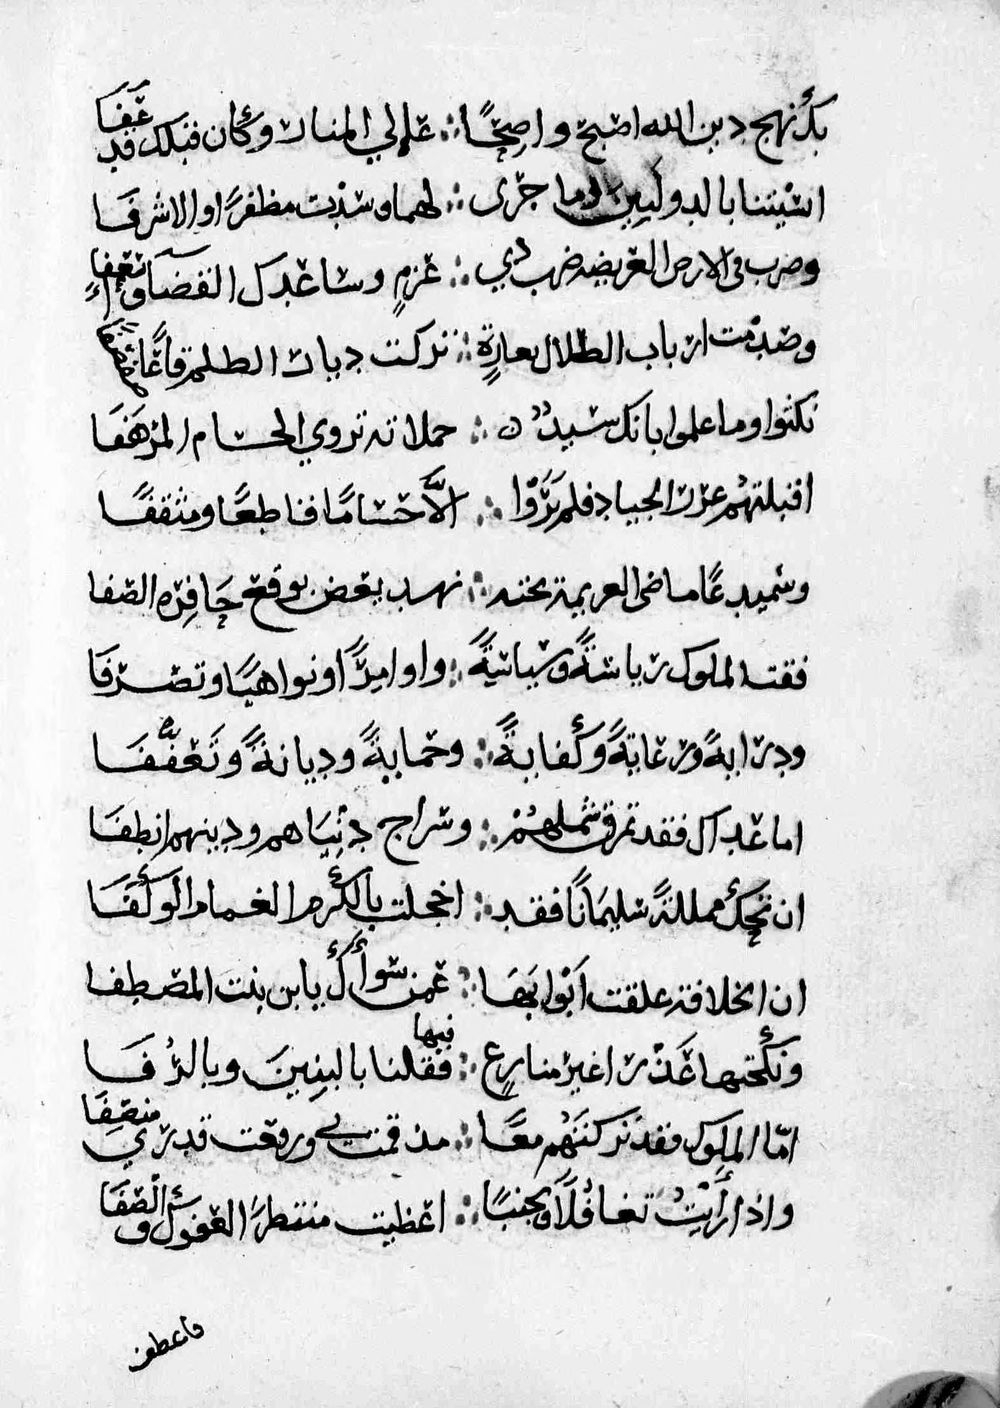 بك نهج دين الله اصبح واضحًا ∴ عالي المنار وكان قبلك قد عفا
انسيتنا بالدولتين وما جرى ∴ لهما وسدت مظفرًا والاشرفا
وضرب في الارض العريضه ضرب ذي ∴ عزمٍ وساعدك القضا
وصدمت ارباب الظلال بغارةٍ ∴ تركت ديار الظلم قاعًا صفصفا
نكثوا وما علموا بانك سيد ∴ حملاته تروي الحسام المرهفا
اقبلتهم غرر الجياد فلم يروا ∴ الاَّ حسامًا قاطعًا ومثقفًا
وسميدعًا ماضى العزيمة تحته ∴ نهد يفض بوقع حافره الصفا
فقت الملوك رياسةً وسياسةً ∴ واوامرًا ونواهيًا وتصرفا
ودرايةً ورعايةً وكفايةً ∴ وحمايةً وديانةً وتعففَا
اما عداك فقد تمزق شملهم ∴ وسراج دنياهم ودينهم انطفا
ان تحك مملكةً سليمانًا فقد ∴ اخجلت بالكرم الغمام الوكفا
ان الخلافة علقت ابوابها ∴ عمن سواك يا بن بنت المصطفا
ونكحتها عذرا غير منازع ∴ فيها فقلنا بالبنين وبالرفا
امّا الملوك فقد تركتهم معًا ∴ مذ قمت في ورفعت قدري منصفا
واذا رأيت تغافلاً وتجنبًا ∴ اغضيت منتظرًا القفول والصفا
فاعطف